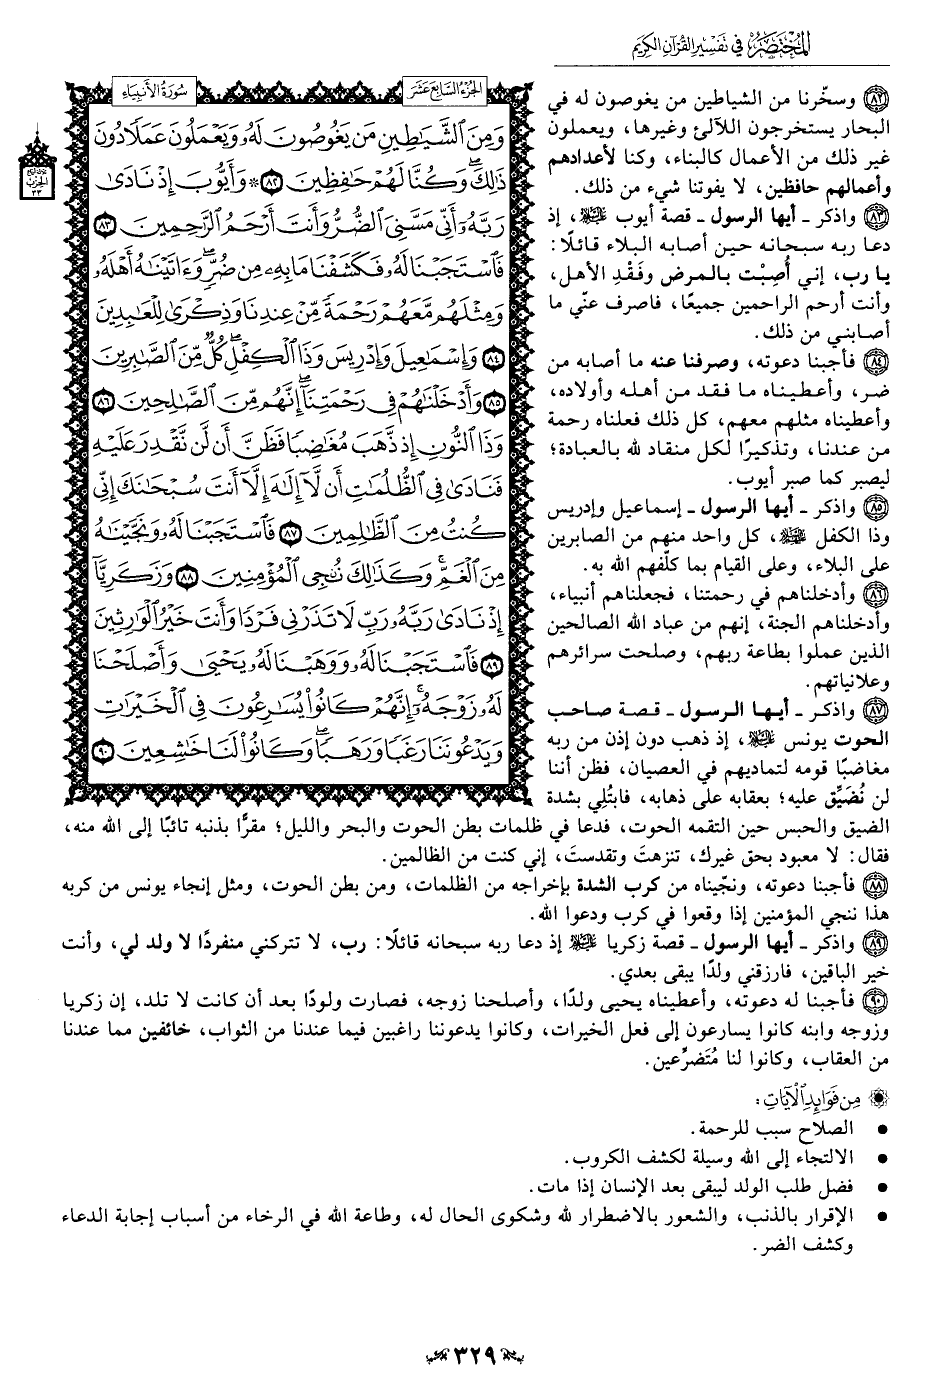 المختصر في تفسير القرآن الكريم
الجزء السابع عشر
سورة الأنبياء
وَمِنَ الشَّيَاطِينِ مَن يَغُوصُونَ لَهُ وَيَعْمَلُونَ عَمَلًا دُونَ
ذَٰلِكَ ۖ وَكُنَّا لَهُمْ حَافِظِينَ ٨٢ ۞ وَأَيُّوبَ إِذْ نَادَىٰ
رَبَّهُ أَنِّي مَسَّنِيَ الضُّرُّ وَأَنتَ أَرْحَمُ الرَّاحِمِينَ ٨٣
فَاسْتَجَبْنَا لَهُ فَكَشَفْنَا مَا بِهِ مِن ضُرٍّ ۖ وَآتَيْنَاهُ أَهْلَهُ
وَمِثْلَهُم مَّعَهُمْ رَحْمَةً مِّنْ عِندِنَا وَذِكْرَىٰ لِلْعَابِدِينَ
٨٤ وَإِسْمَاعِيلَ وَإِدْرِيسَ وَذَا الْكِفْلِ ۖ كُلٌّ مِّنَ الصَّابِرِينَ
٨٥ وَأَدْخَلْنَاهُمْ فِي رَحْمَتِنَا ۖ إِنَّهُم مِّنَ الصَّالِحِينَ ٨٦
وَذَا النُّونِ إِذ ذَّهَبَ مُغَاضِبًا فَظَنَّ أَن لَّن نَّقْدِرَ عَلَيْهِ
فَنَادَىٰ فِي الظُّلُمَاتِ أَن لَّا إِلَٰهَ إِلَّا أَنتَ سُبْحَانَكَ إِنِّي
كُنتُ مِنَ الظَّالِمِينَ ٨٧ فَاسْتَجَبْنَا لَهُ وَنَجَّيْنَاهُ
مِنَ الْغَمِّ ۚ وَكَذَٰلِكَ نُنجِي الْمُؤْمِنِينَ ٨٨ وَزَكَرِيَّا
إِذْ نَادَىٰ رَبَّهُ رَبِّ لَا تَذَرْنِي فَرْدًا وَأَنتَ خَيْرُ الْوَارِثِينَ
٨٩ فَاسْتَجَبْنَا لَهُ وَوَهَبْنَا لَهُ يَحْيَىٰ وَأَصْلَحْنَا
لَهُ زَوْجَهُ ۚ إِنَّهُمْ كَانُوا يُسَارِعُونَ فِي الْخَيْرَاتِ
وَيَدْعُونَنَا رَغَبًا وَرَهَبًا ۖ وَكَانُوا لَنَا خَاشِعِينَ ٩٠
٨٢ وسخّرنا من الشياطين من يغوصون له في
البحار يستخرجون اللآلئ وغيرها، ويعملون
غير ذلك من الأعمال كالبناء، وكنا لأعدادهم
وأعمالهم حافظين، لا يفوتنا شيء من ذلك.
٨٣ واذكر ـ أيها الرسول ـ قصة أيوب عليه السلام، إذ
دعا ربه سبحانه حين أصابه البلاء قائلًا:
يا رب، إني أُصِبْت بالمرض وفَقْدِ الأهل،
وأنت أرحم الراحمين جميعًا، فاصرف عنّي ما
أصابني من ذلك.
٨٤ فأجبنا دعوته، وصرفنا عنه ما أصابه من
ضر، وأعطيناه ما فقد من أهله وأولاده،
وأعطيناه مثلهم معهم، كل ذلك فعلناه رحمة
من عندنا، وتذكيرًا لكل منقاد لله بالعبادة؛
ليصبر كما صبر أيوب.
٨٥ واذكر ـ أيها الرسول ـ إسماعيل وإدريس
وذا الكفل عليهم السلام، كل واحد منهم من الصابرين
على البلاء، وعلى القيام بما كلّفهم الله به.
٨٦ وأدخلناهم في رحمتنا، فجعلناهم أنبياء،
وأدخلناهم الجنة، إنهم من عباد الله الصالحين
الذين عملوا بطاعة ربهم، وصلحت سرائرهم
وعلانياتهم.
٨٧ واذكر ـ أيها الرسول ـ قصة صاحب
الحوت يونس عليه السلام، إذ ذهب دون إذن من ربه
مغاضبًا قومه لتماديهم في العصيان، فظن أننا
لن نُضَيِّق عليه؛ بعقابه على ذهابه، فابتُلِي بشدة
الضيق والحبس حين التقمه الحوت، فدعا في ظلمات بطن الحوت والبحر والليل؛ مقرًّا بذنبه تائبًا إلى الله منه،
فقال: لا معبود بحق غيرك، تنزهتَ وتقدستَ، إني كنت من الظالمين.
٨٨ فأجبنا دعوته، ونجّيناه من كرب الشدة بإخراجه من الظلمات، ومن بطن الحوت، ومثل إنجاء يونس من كربه
هذا ننجي المؤمنين إذا وقعوا في كرب ودعوا الله.
٨٩ واذكر ـ أيها الرسول ـ قصة زكريا عليه السلام إذ دعا ربه سبحانه قائلًا: رب، لا تتركني منفردًا لا ولد لي، وأنت
خير الباقين، فارزقني ولدًا يبقى بعدي.
٩٠ فأجبنا له دعوته، وأعطيناه يحيى ولدًا، وأصلحنا زوجه، فصارت ولودًا بعد أن كانت لا تلد، إن زكريا
وزوجه وابنه كانوا يسارعون إلى فعل الخيرات، وكانوا يدعوننا راغبين فيما عندنا من الثواب، خائفين مما عندنا
من العقاب، وكانوا لنا مُتَضرِّعين.
مِن فَوَائِدِ الْآيَاتِ:
● الصلاح سبب للرحمة.
● الالتجاء إلى الله وسيلة لكشف الكروب.
● فضل طلب الولد ليبقى بعد الإنسان إذا مات.
● الإقرار بالذنب، والشعور بالاضطرار لله وشكوى الحال له، وطاعة الله في الرخاء من أسباب إجابة الدعاء
وكشف الضر.
٣٢٩